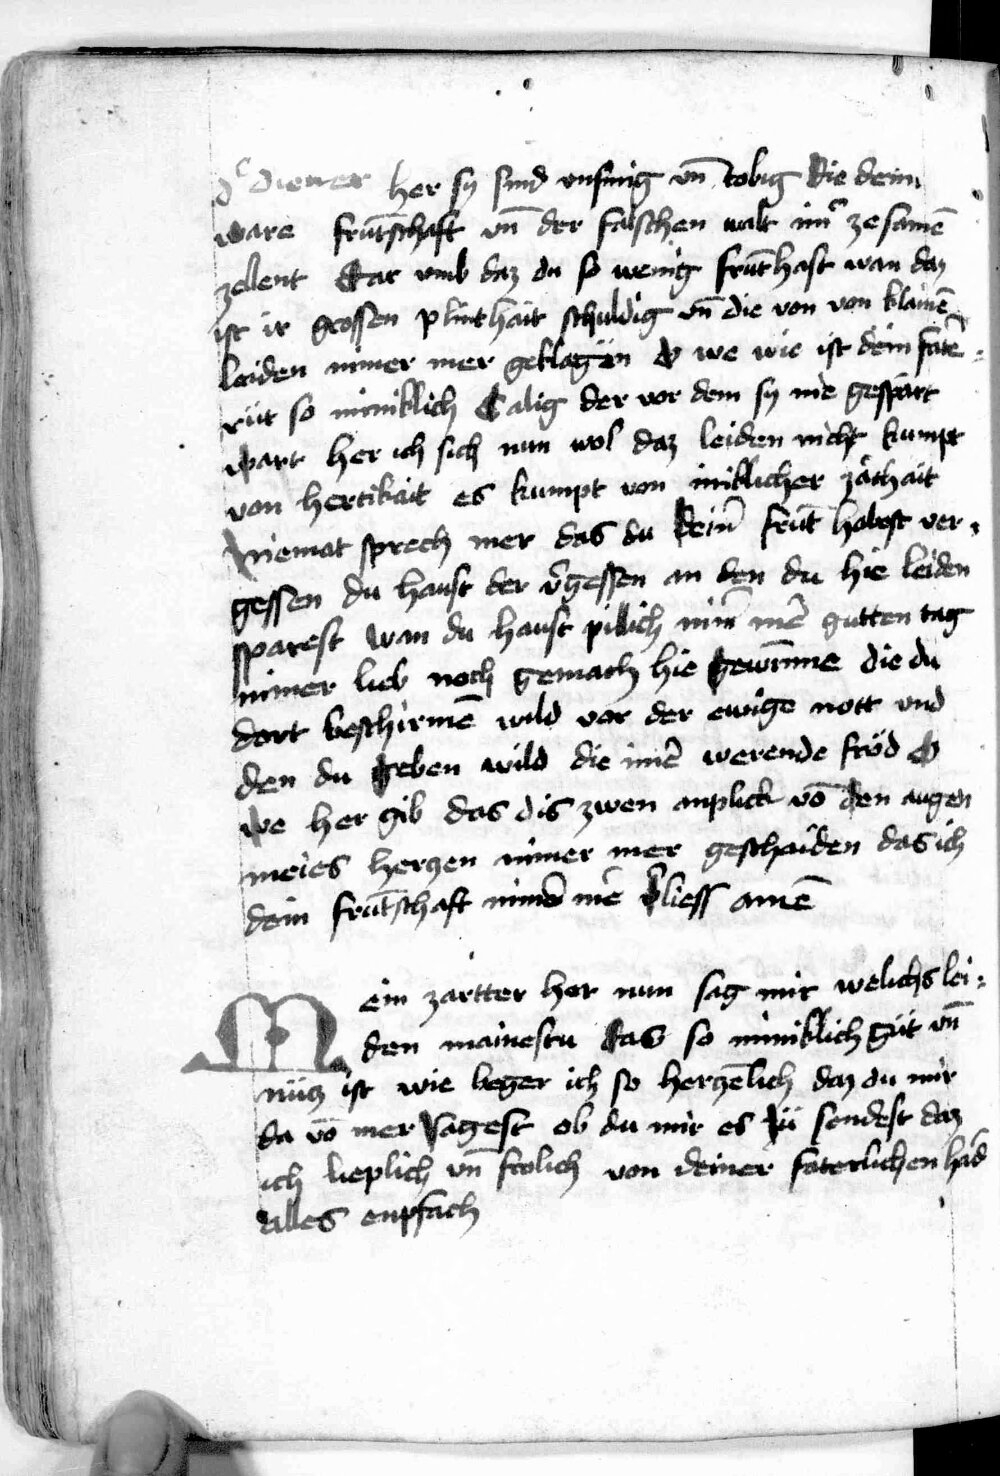 dᵉ diener her sy sind vnsinig vn̄ tobig die dein
ware frūtschaft vn̄ der falschen walt im̄ zesamē
zellent Dar vmb daz du so wenig frūt hast wan daz
ist ir grossen plinthait schuldig vn̄ die von von klainē
leiden nimer mer geklagen O we wie ist dein fatē =
rüt so miniklich Salig der vor dem sy nie gespart
wart her ich sich nun wol daz leiden nicht kumpt
von hertikait es kumpt von iniklicher zäthait
Niemat sprech mer das du deinē frūt habest ver =
gessen du haust der v̄gessen an den du hie leiden
sparest wan du haust pilich nim̄ mē gutten tag
nimer lieb noch gemach hie gewinne die du
dort beschirmē wild vor der ewige nott vnd
den du geben wild die imē werende fröd O
we her gib das dis zwen anplick vō den augen
meies hergen nimer mer geschaiden das ich
dein frūtschaft nimē mē v̄liess amē
Mein zartter her nun sag mir welichs lei =
den mainestu das so miniklich güt vn̄
nüg ist wie beger ich so hergēlich daz du mir
da vō mer sagest ob du mir es zü sendest daz
ich lieplich vn̄ frolich von deiner faterlichen hād
alles enpfach